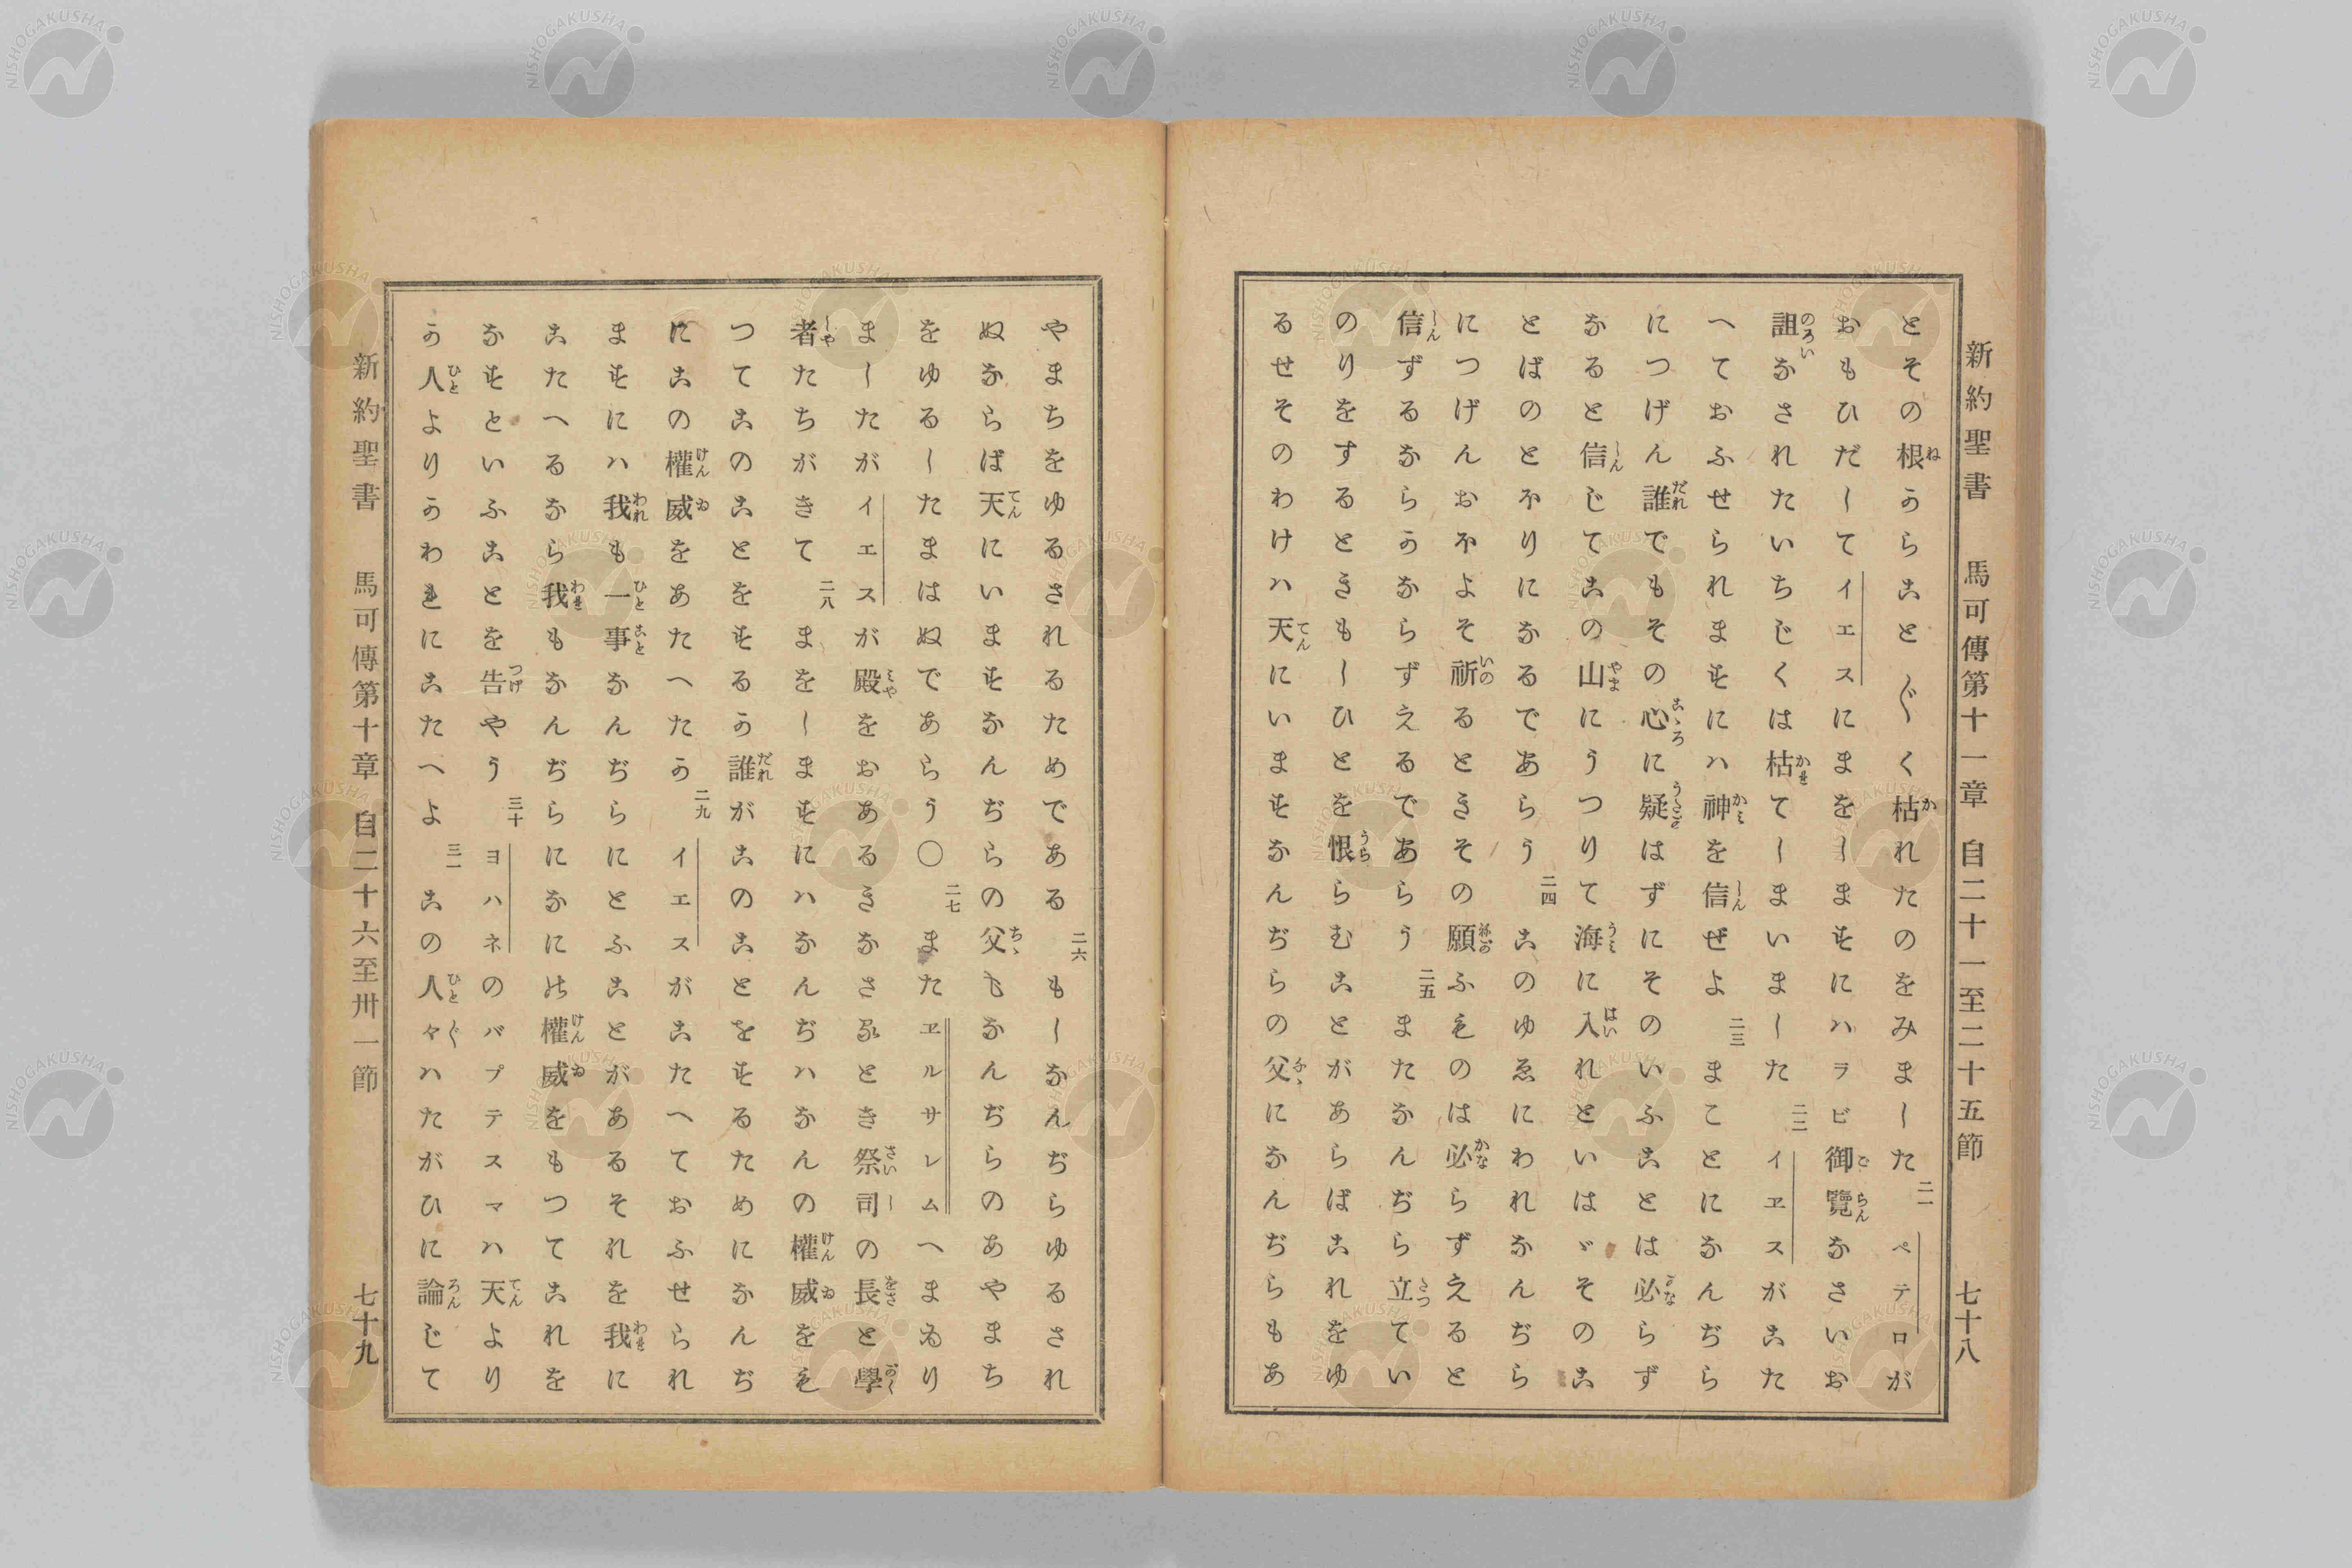 新約聖書　馬可傳第十一章　自二十一至二十五節　七十八
とその根うらこと〴〵く枯れたのをみました 二一 ペテロが
おもひだしてイエスにまをしますにハラビ御覽なさいお
詛なされたいちじくは枯てしまいました 二二 イヱスがこた
へておふせられますにハ神を信ぜよ 二三 まことになんぢら
につげん誰でもその心に疑はずにそのいふことは必らず
なると信じてこの山にうつりて海に入れといはゞそのこ
とばのとおりになるであらう 二四 このゆゑにわれなんぢら
につげんおおよそ祈るときその願ふものは必らずえると
信ずるならうならずえるであらう 二五 またなんぢら立てい
のりをするときもしひとを恨らむことがあらばこれをゆ
るせそのわけハ天にいますなんぢらの父になんぢらもあ
やまちをゆるされるためである 二六 もしなんぢらゆるされ
ぬならば天にいますなんぢらの父もなんぢらのあやまち
をゆるしたまはぬであらう〇 二七 またヱルサレムへまゐり
ましたがイエスが殿をおあるきなさるとき祭司の長と學
者たちがきて 二八 まをしますにハなんぢハなんの權威をも
つてこのことをするか誰がこのことをするためになんぢ
にこの權威をあたへたか 二九 イエスがこたへておふせられ
ますにハ我も一事なんぢらにとふことがあるそれを我に
こたへるなら我もなんぢらになにの權威をもつてこれを
なすといふことを告やう 三十 ヨハネのバプテスマハ天より
か人よりかわれにこたへよ 三一 この人々ハたがひに論じて
新約聖書　馬可傳第十章　自二十六至卅一節　七十九